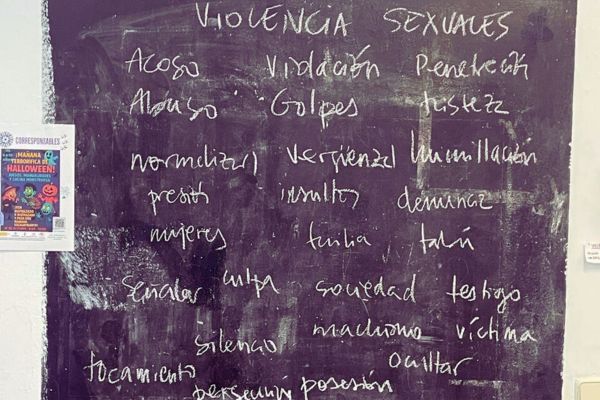 VIOLENCIA SEXUALES
Acoso violación Penetración
Abuso Golpes tristeza
normalizar vergüenza humillación
presión insultos denuncia
mujeres familia tabú
señalar culpa sociedad testigo
silencio machismo víctima
tocamiento ocultar
persecución posesión
CORRESPONSABLES
¡MAÑANA
TERRORÍFICA DE
HALLOWEEN!